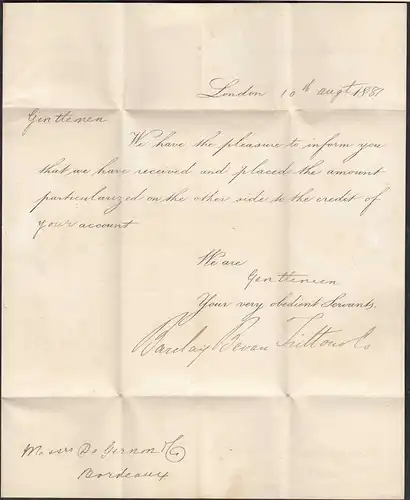 London 10th augt 1887
Gentlemen
We have the pleasure to inform you
that we have received and placed the amount
particularized on the other side to the credit of
your account
We are
Gentlemen
Your very obedient Servants,
Barclay Bevan Tritton & Co
Messrs De Gernon & Co
Bordeaux